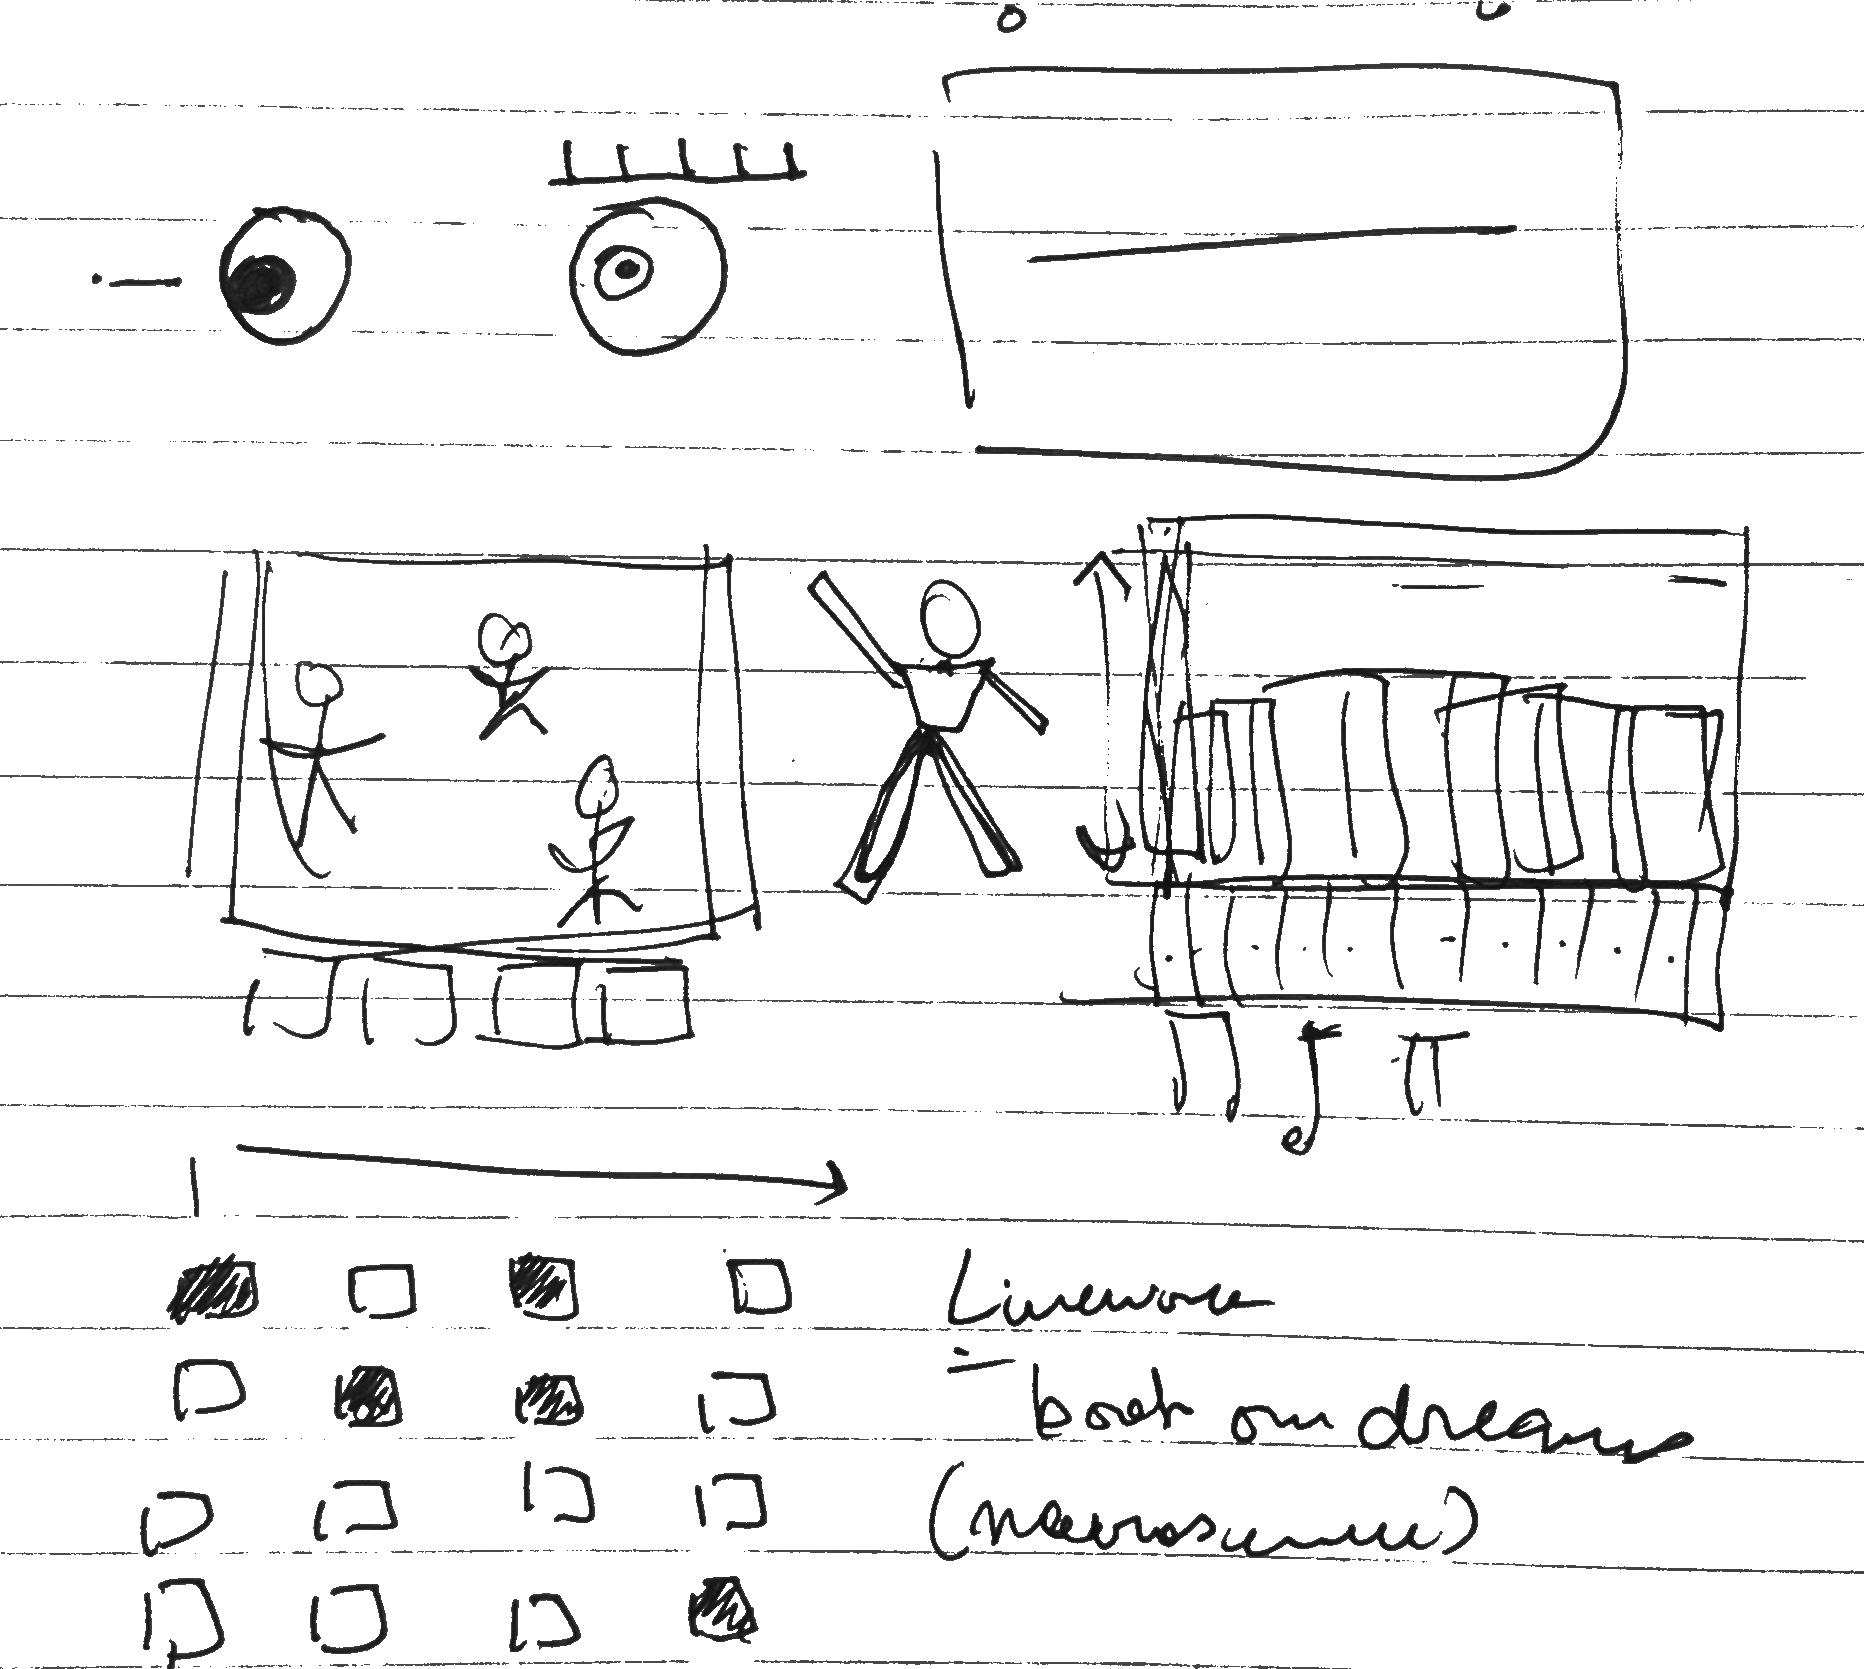 Linework
- book on dreams
(neuroscience)